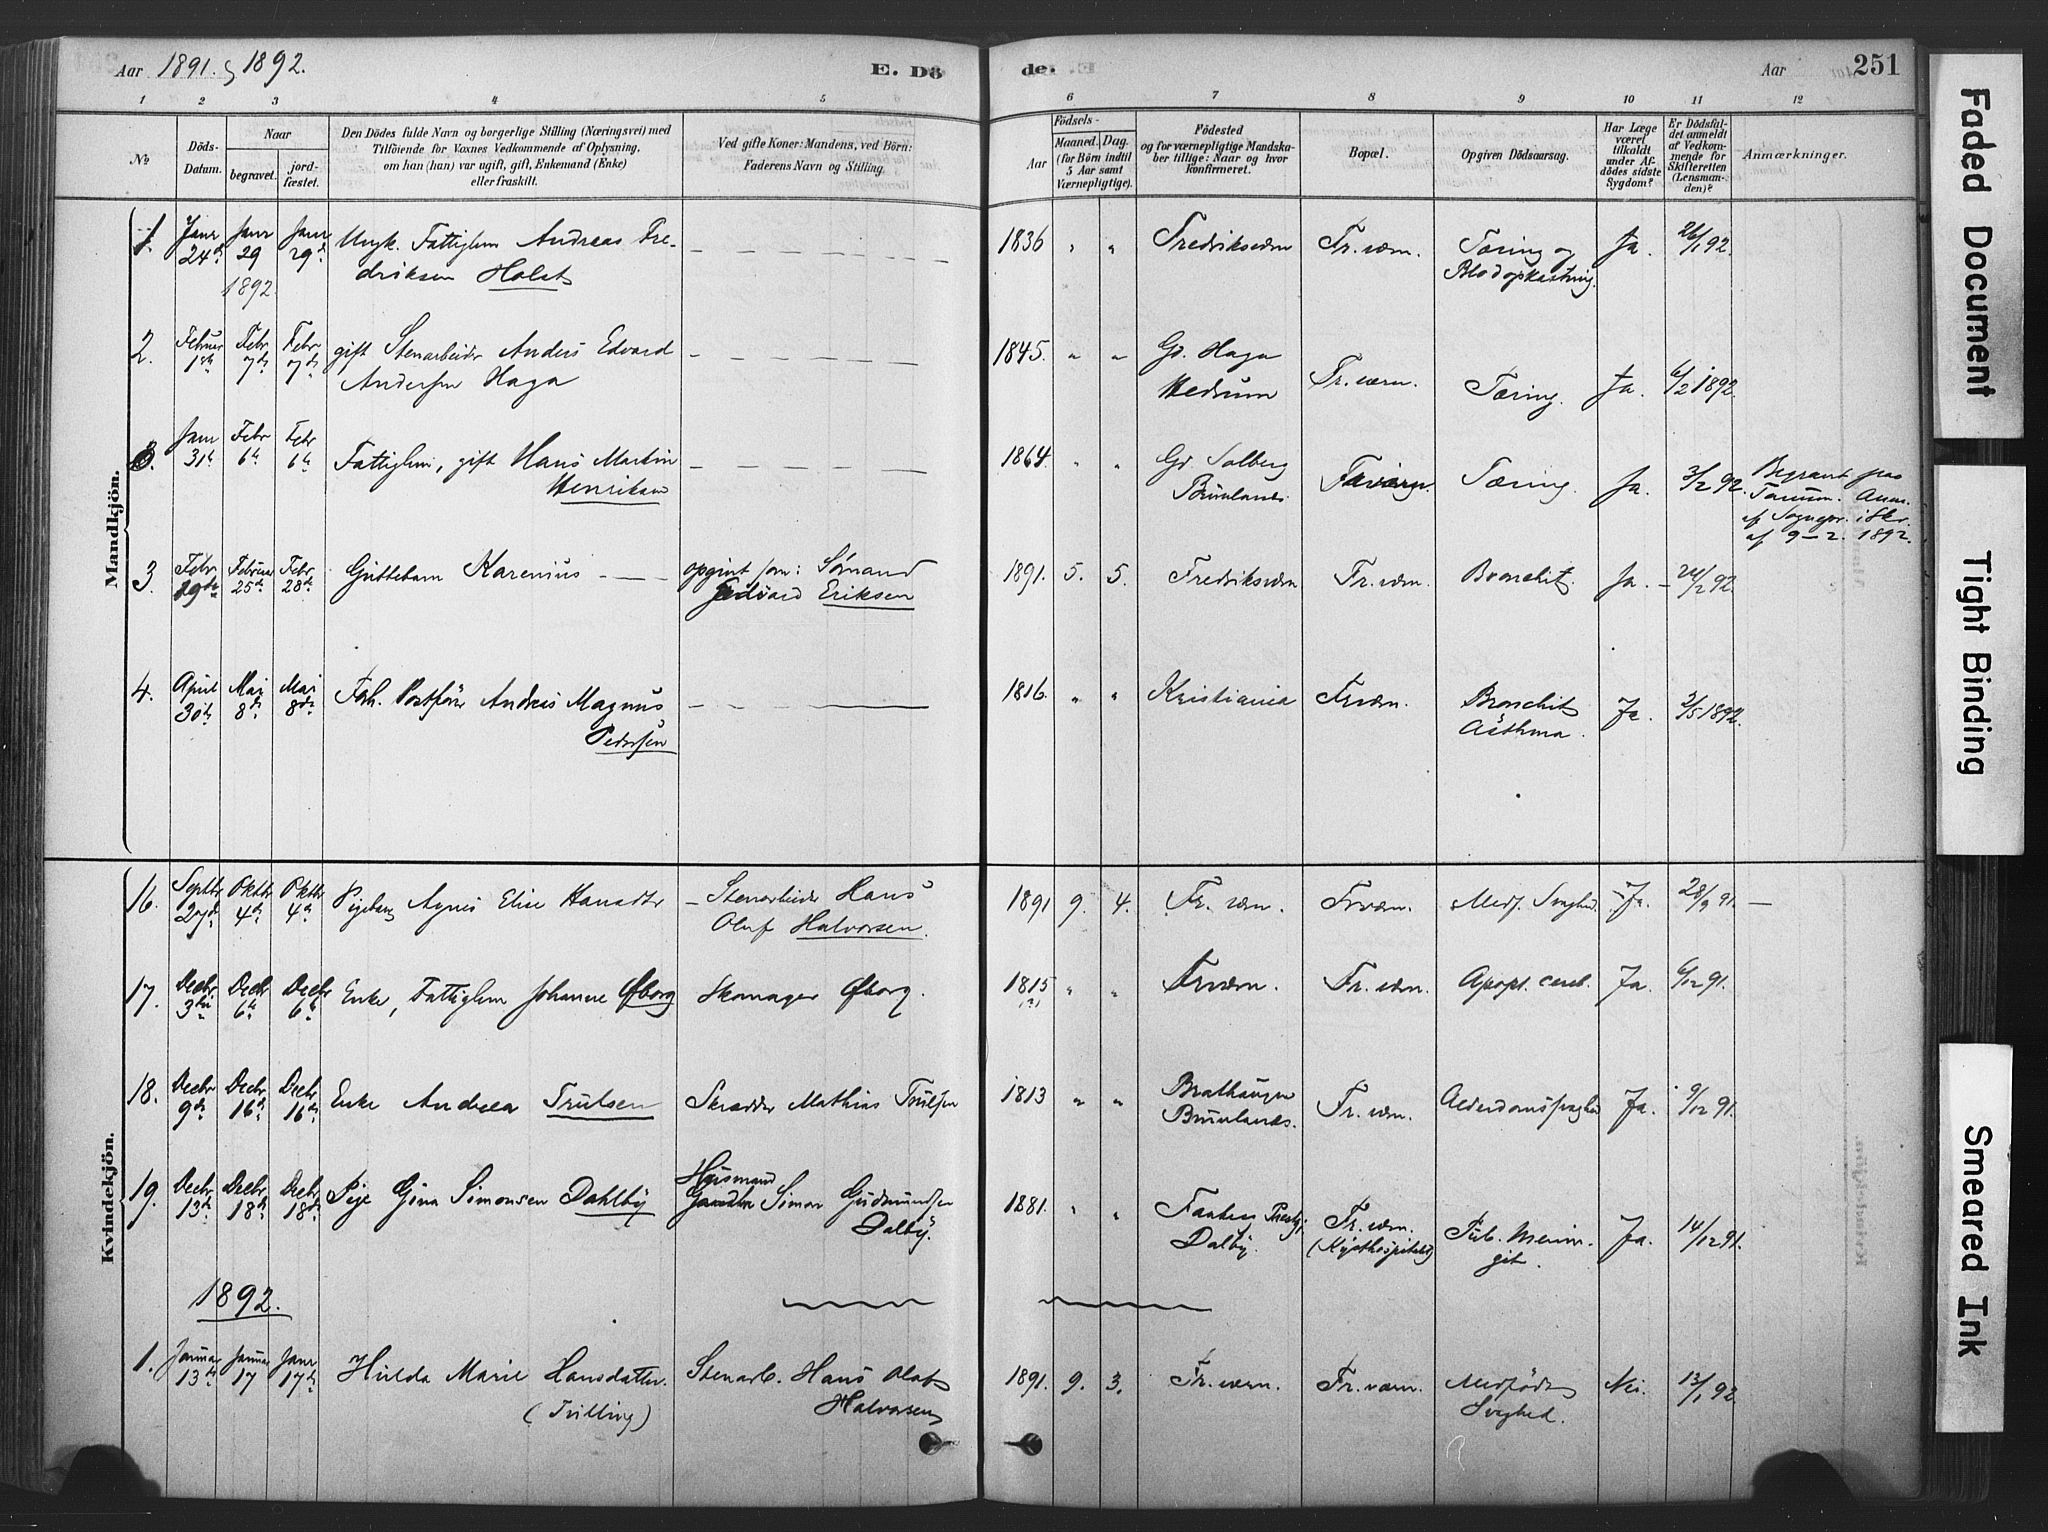 Aar 1891. og 1892.
E. Dö
de.
Aar
251
1 2 3 4 5 6 7 8 9 10 11 12
No
Döds-
Datum.
Naar
begravet.
jord-
fæstet.
Den Dödes fulde Navn og borgerlige Stilling (Næringsvei) med
Tilföiende for Voxnes Vedkommende af Oplysning,
om han (hun) var ugift, gift, Enkemand (Enke)
eller fraskilt.
Ved gifte Koner: Mandens, ved Börn:
Faderens Navn og Stilling.
Födsels-
Aar
Maaned.
Dag.
(for Börn indtil
5 Aar samt
Værnepligtige).
Födested
og for værnepligtige Mandska-
ber tillige: Naar og hvor
konfirmeret.
Bopæl.
Opgiven Dödsaarsag.
Har Læge
været
tilkaldt
under Af-
dödes sidste
Sygdom?
Er Dödsfal-
det anmeldt
af Vedkom-
mende for
Skifteretten
(Lensman-
den)?
Anmærkninger.
Mandkjön.
1. Janr 24de Janr 29 1892. Janr 29de Ungk. Fattiglem Andreas Fre-
driksen Holst
1836 " " Fredriksværn Fr.værn. Tæring og
Blodopkastning. Ja. 26/1 92.
2. Februar 1ste Febr 7de Febr 7de gift Stenarbeider Anders Edvard
Andersen Haga
1845. " " Gd. Haga
Hedrum Fr.værn. Tæring. Ja. 6/2 1892.
Janr 31te Febr 6te Febr 6te Fattiglem, gift Hans Martin
Henriksen
1864. " " Gd. Solberg
Brunlanes Tæring. Ja. 3/2 92. Begravet paa
Tanum. Anm.
af Sognepr. i Skr.
af 9-2. 1892.
3 Febr 19de Februar 25de Febr. 28de Guttebarn Karenius opgivet som: Sørnand
Edvard Eriksen
1891. 5. 5. Fredriksværn Fr.værn. Bronchit. Ja.
4. April 30te Mai 8de Mai 8de Fh. Postfører Andreas Magnus
Pedersen
1816. " " Kristiania Frværn. Bronchit
Asthma. Ja. 2/5 1892.
Kvindekjön.
16. Septbr 27de Oktbr 4de Oktbr 4de Pigebarn Agnes Elise Hansdtr Stenarbeider Hans
Oluf Halvorsen.
1891 9. 4. Fr.værn. Frværn. Medf. Svaghed. Ja. 28/9 91.
17. Decbr. 3die Decbr 6te Decbr 6te Enke, Fattiglem Johanne Øfborg Skomager Øfborg.
1815 (?) " " Frværn. Fr.værn. Apopl. cereb. Ja. 6/12 91.
18. Decbr 9de Decbr 16de Decbr 16de Enke Andrea Trulsen Skrædder Mathias Trulsen
1813 " " Brathaugen
Brunlanes. Fr.værn. Alderdomssvaghed Ja. 9/12 91.
19. Decbr 13de Decbr 18de Decbr 18de Pige Gina Simonsen Dahlby Husmand
Simon Gudmundsen
Dalby.
1881. " " Præstgj.
Dalby. Fr.værn.
(Kysthospitalet) Tub. Menin-
git. Ja. 14/12 91.
1892.
1. Januar 13de Januar 17 Janr 17de Hulda Marie Hansdatter.
(Tvilling) Stenarb. Hans Olaf
Halvorsen
1891. 9. 3. Fr.værn. Fr.værn. Medfødt
Svaghed. Nei. 13/1 92
Faded Document
Tight Binding
Smeared Ink